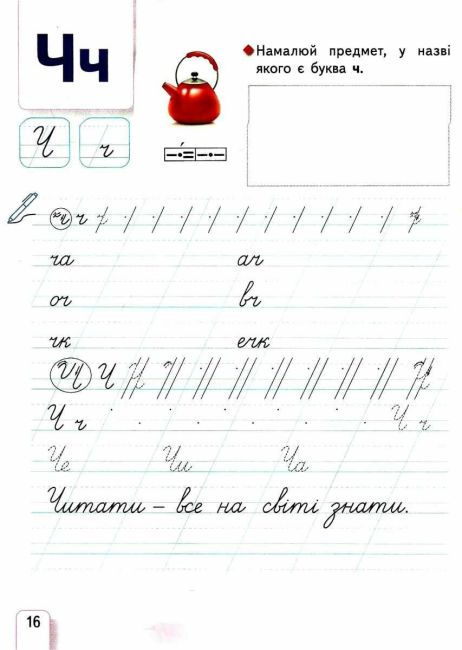 Чч
Намалюй предмет, у назві
якого є буква ч.
Ч ч
ч
ча ач
оч вч
чк ечк
Ч
Ч ч Ч ч
Че Чи Ча
Читати – все на світі знати.
16